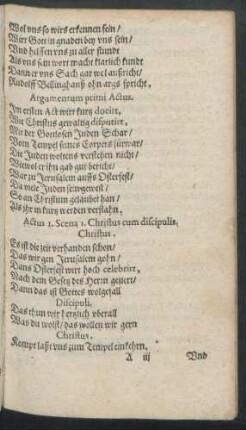 Wol vns so wirs erkennen fein/
Wirt Gott in gnaden bey vns sein/
Vnd helffen vns zu aller stundt
Als vns sein wort macht klarlich kundt
Dann er vns Sach gar wol außricht/
Rudolff Bellinghauß ohn args spricht.
Argumentum primi Actus.
Im ersten Act wirt kurtz docirt,
Wie Christus gewaltig disputirt,
Mit der Gottlosen Juden Schar/
Vom Tempel seines Corpers fürwar/
Die Juden woltens verstehen nicht/
Wiewol er ihn gab gut bericht
War zu Jerusalem auffs Osterfest/
Da viele Juden sein gewest/
So an Christum gelaubet han/
Als ihr in kurtz werden verstahn.
Actus 1. Scena 1. Christus cum discipulis.
Christus.
Es ist die zeit verhanden schon/
Das wir gen Jerusalem gohn/
Dans Osterfest wirt hoch celebrirt,
Nach dem Gesetz des Herrn geuirt/
Dann das ist Gottes wolgefall
Discipuli.
Das thun wir hertzlich vberall
Was du weist/ das wollen wir gern
Christus.
Kompt laßt vns zum Tempel einkehrn,
A iij Vnd